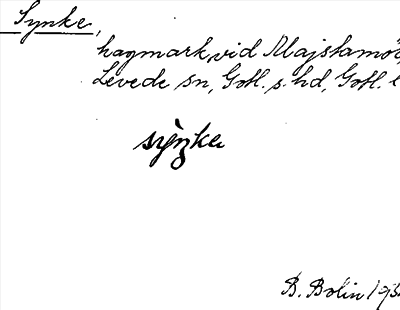 Synke,
hagmark, vid Majstamö
Levede sn, Gotl. s. hd, Gotl. l
sỳŋke
B. Bolin 193